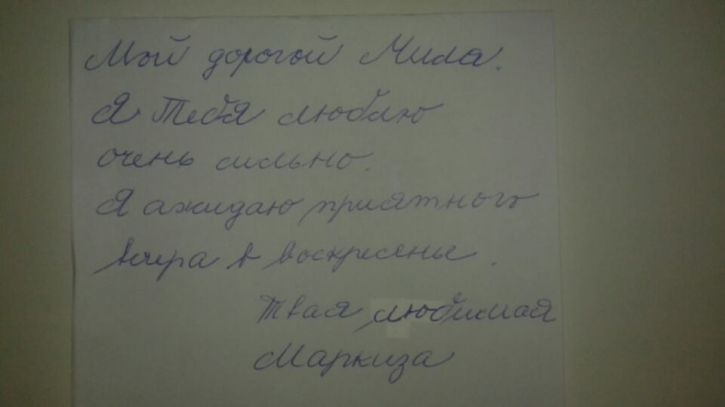 Мой дорогой Мила.
Я Тебя люблю
очень сильно.
Я ажидаю приятного
вечера в воскресенье.
Твая любимая
Маркиза